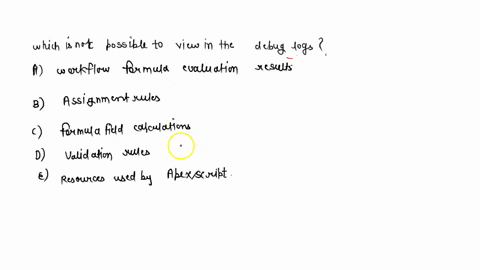 which is not possible to view in the debug logs?
A) workflow formula evaluation results
B) Assignment rules
C) formula field calculations
D) validation rules
E) Resources used by Apex script.